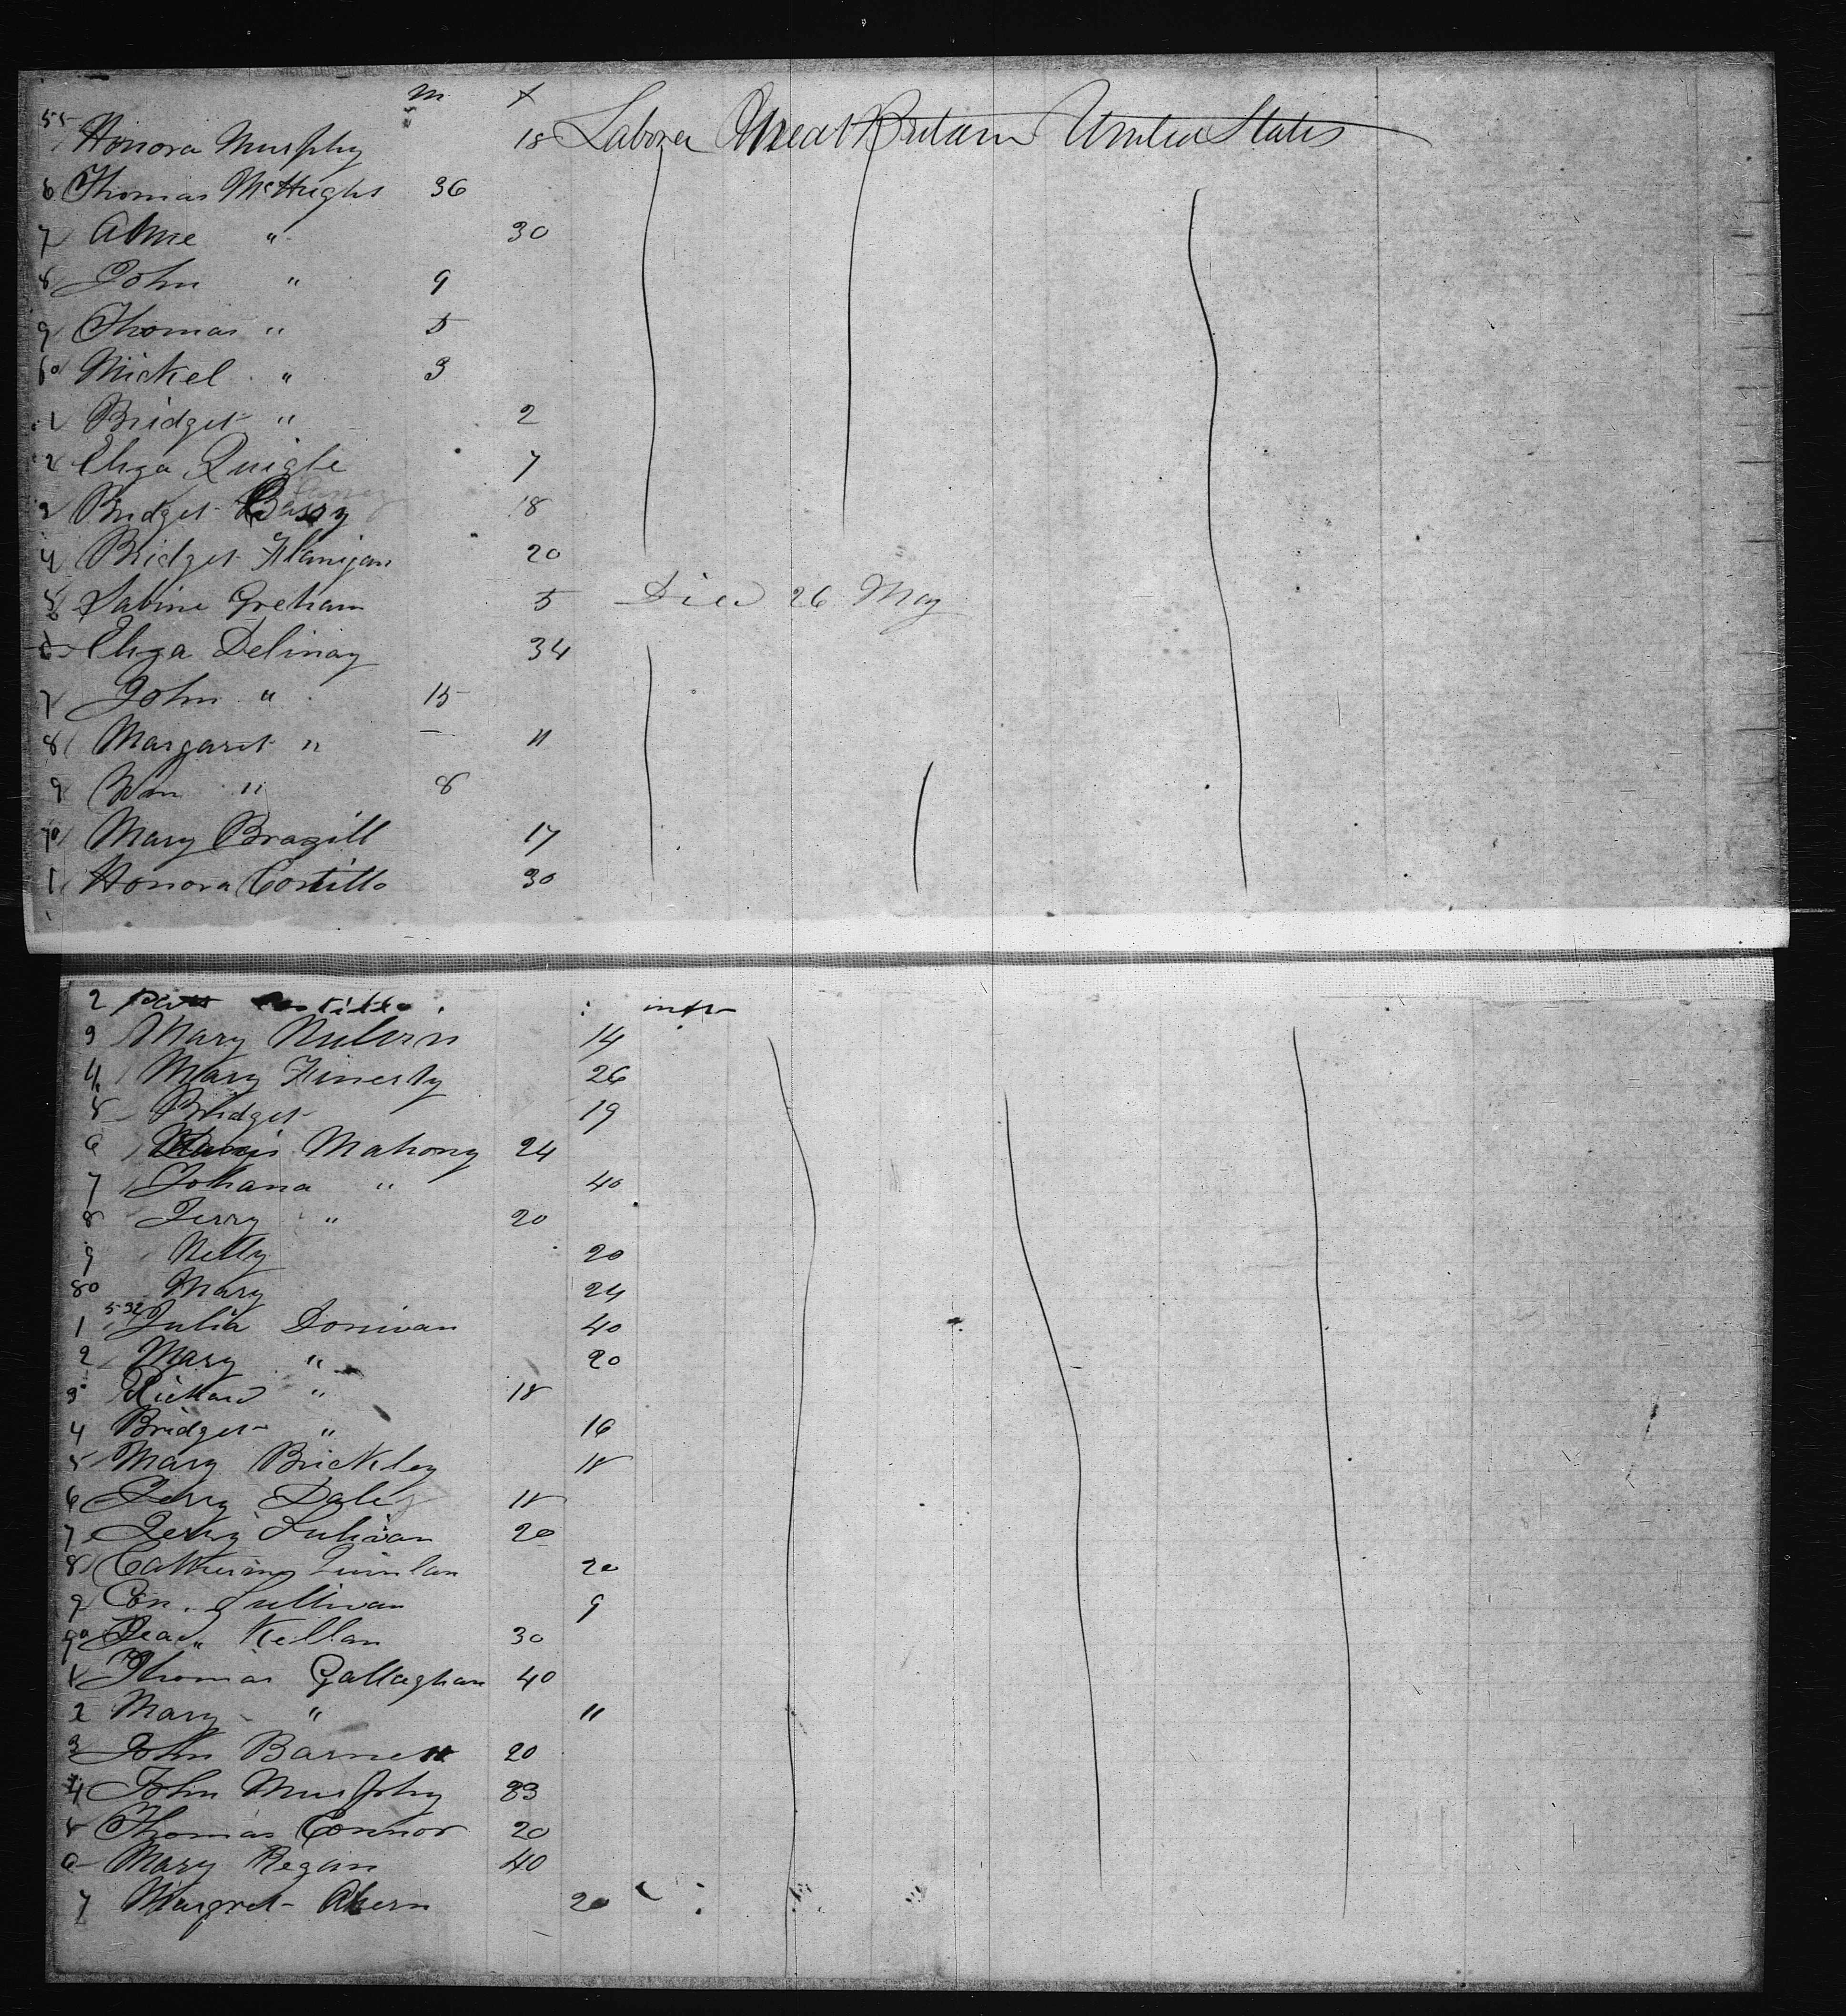 m f
55 Honora Murphy 18 Laborer Great Britain United States
6 Thomas McHughs 36
7 Anne " 30
8 John " 9
9 Thomas " 5
60 Mickel " 3
1 Bridget " 2
2 Eliza Quigle 7
3 Bridget 18
4 Bridget Flanigan 20
5 Sabine Greham 5 Died 26 May
6 Eliza Delinay 34
7 John " 15
8 Margaret " — 11
9 Wm " 8
70 Mary Bragill 17
1 Honora Costillo 30
2 Costillo inft
3 Mary 14
4 Mary Finerty 26
5 Bridget 19
6 Mahony 24
7 Johana " 40
8 Jerry " 20
9 Nelly 20
80 Mary 24
532
1 Julia Donivan 40
2 Mary " 20
3 Richard " 18
4 Bridget " 16
5 Mary Brickley 18
6 Jerry Daley 18
7 Jerry Sulivan 20
8 Catherine Quinlan 20
9 Con. Sullivan 9
90 Kellan 30
1 Thomas Gallaghan 40
2 Mary " 11
3 John Barnett 20
4 John Murphy 23
5 Thomas Connor 20
6 Mary Regan 40
7 Margret Ahern 20